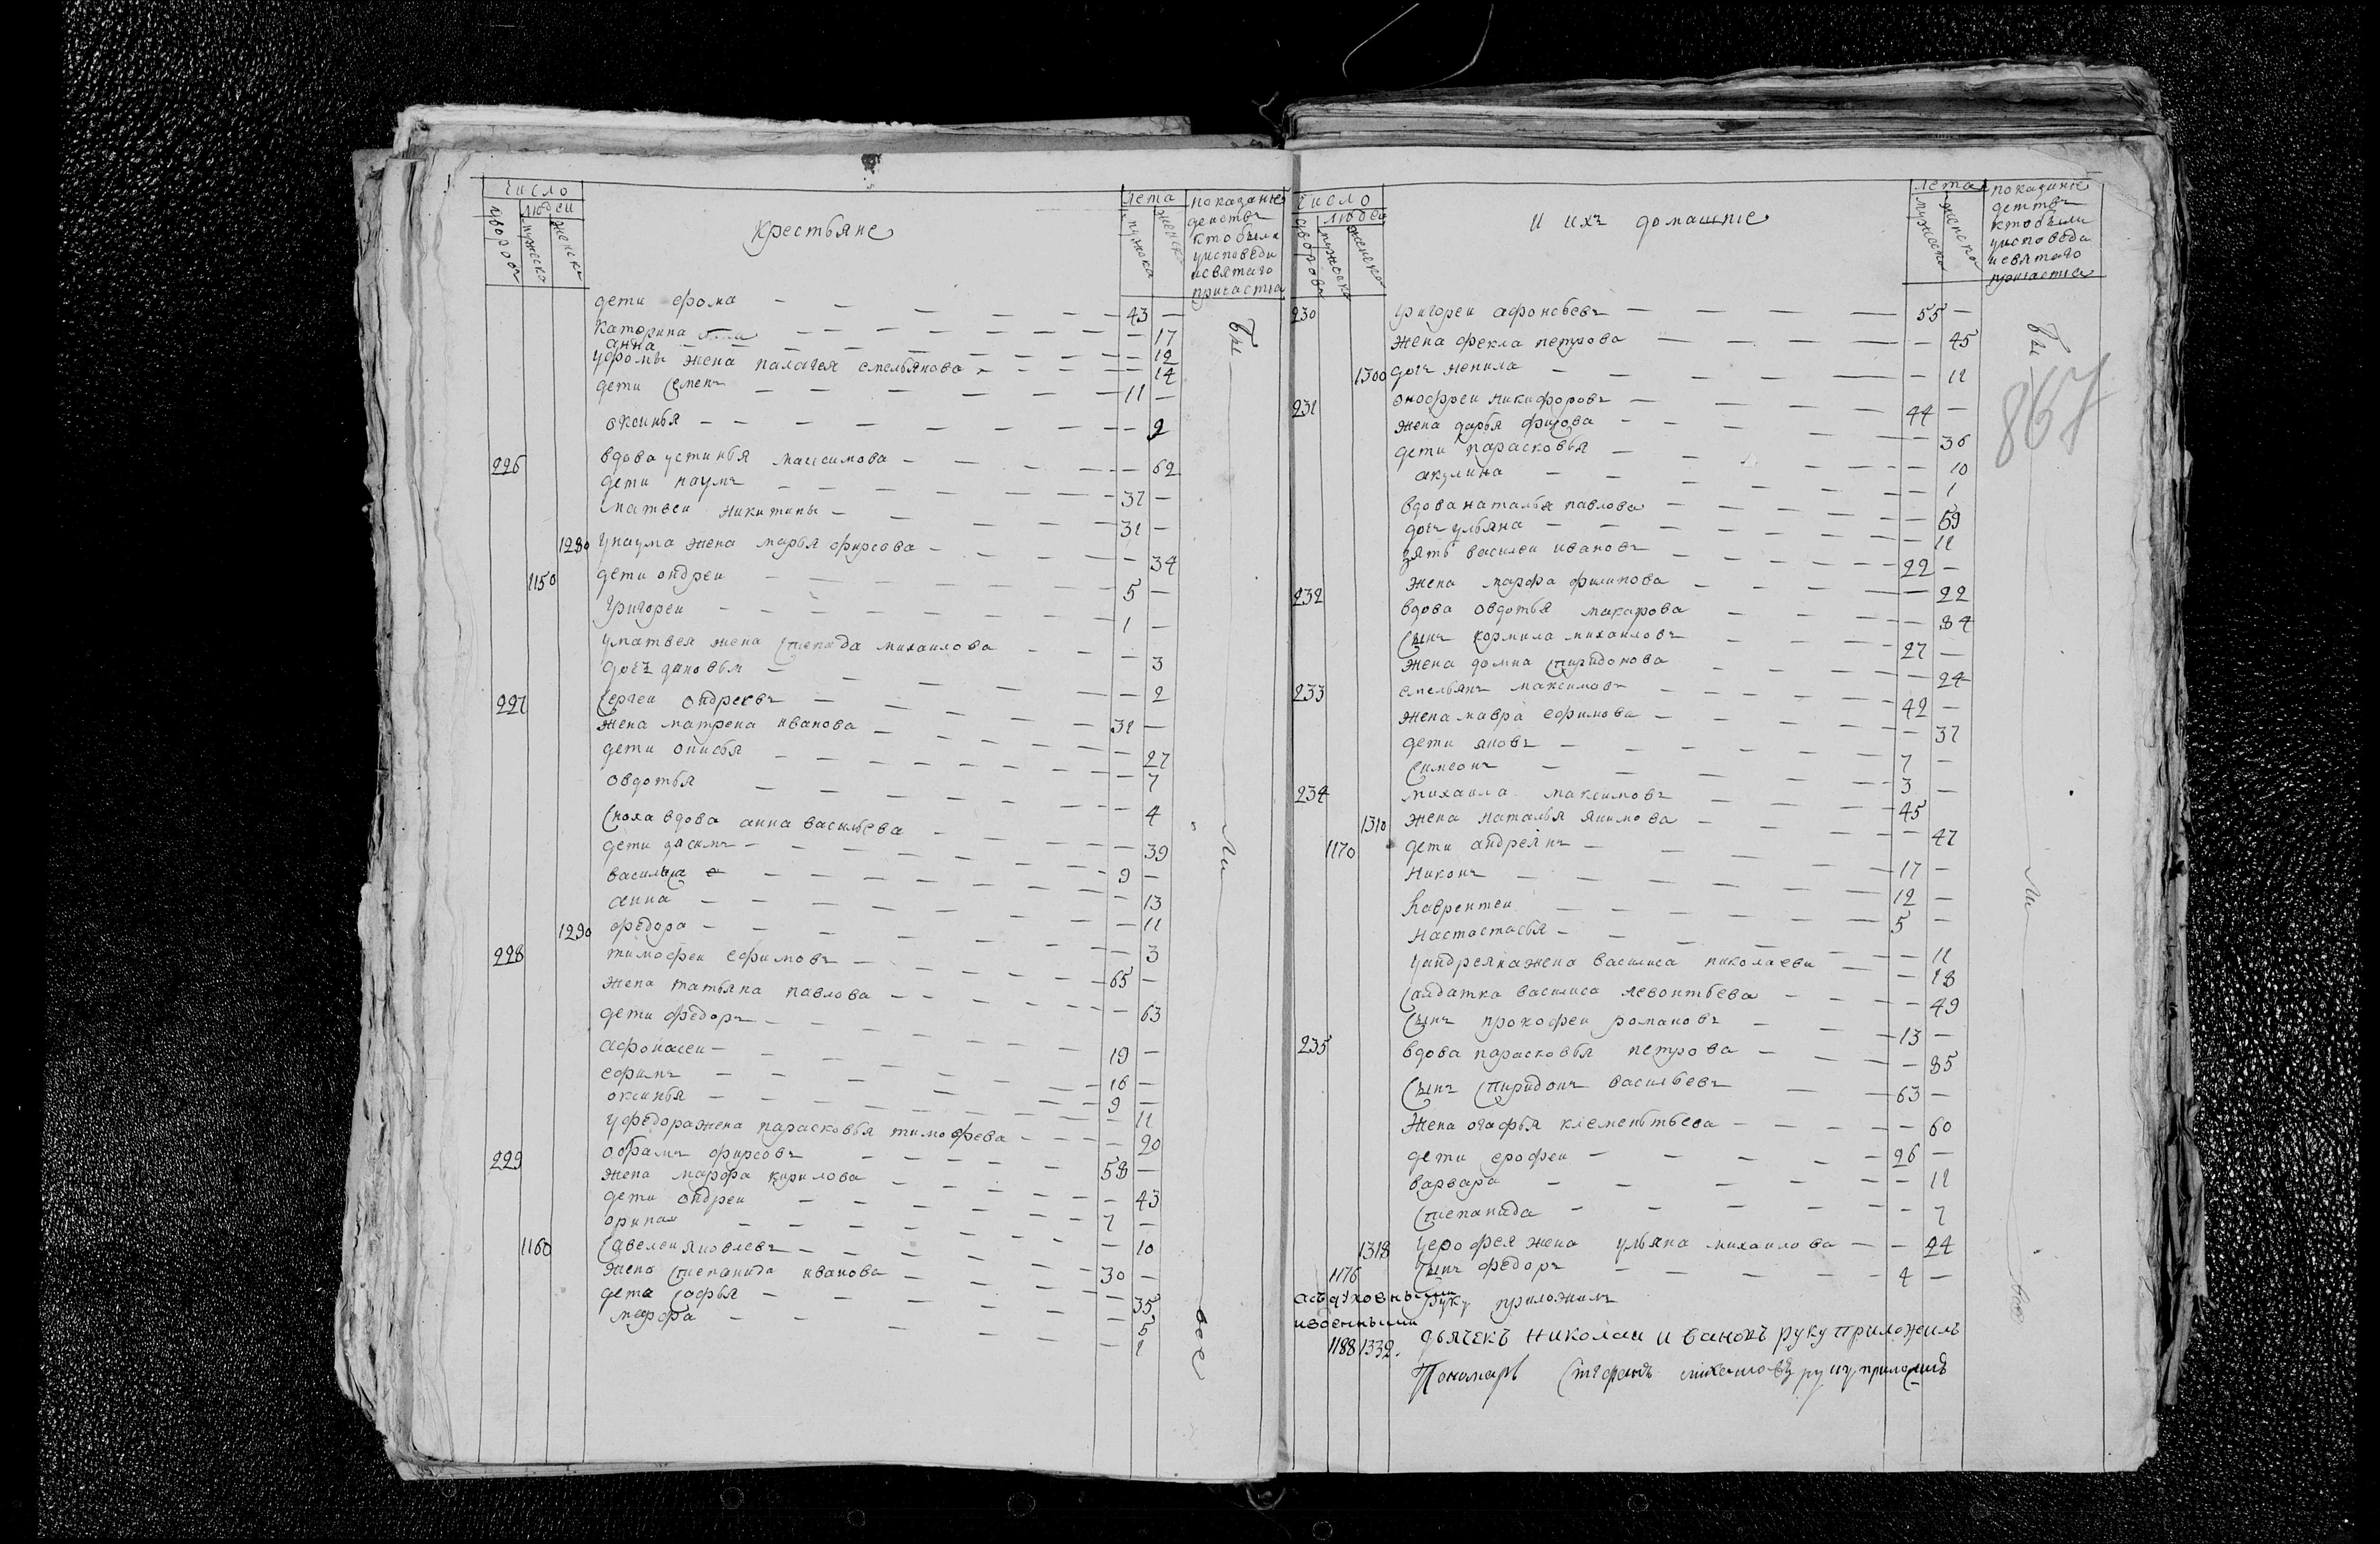 число
людеи
дворовъ мужеска женска
крестьяне
лета
мужска женска
показание
деиствъ
кто были
у исповеди
и святаго
причастиа
дети фома 43 —
катерина — 17
анна — 12
у фомы жена палагея емельянова — 14
дети семенъ 11 —
оксинья — 9
226 вдова устинья максимова — 62
дети наумъ 37 —
матвеи никитины 31 —
1280 у наума жена марья фирсова — 34
1150 дети ондреи 5 —
григореи 1 —
у матвея жена степанида михаилова — 3
дочь зиновья — 2
227 сергеи ондреевъ 31 —
жена матрена иванова — 27
дети онисья — 7
овдотья — 4
сноха вдова анна васильева — 39
дети дасимъ 9 —
василиса — 13
анна — 11
1290 федора — 3
228 тимофеи ефимовъ 65 —
жена татьяна павлова — 63
дети федоръ 19 —
афонасеи 16 —
ефимъ 9 —
оксинья — 11
у федора жена парасковья тимофева — 20
229 обрамъ фирсовъ 58 —
жена марфа кирилова — 43
дети ондреи 7 —
орина — 10
1160 савелеи яковлевъ 30 —
жена степанида иванова — 35
дети софья — 5
марфа — 1
Бы ли все
число
людеи
дворовъ мужеска женска
и ихъ домашние
лета
мужеска женска
показание
деиствъ
кто были
у исповеди
и святаго
причастиа
867
230 григореи афонсьевъ 55 —
жена фекла петрова — 45
1300 дочь ненила — 11
231 онофреи никифоровъ 44 —
жена дарья фирсова — 36
дети парасковья — 10
акулина — 1
вдова наталья павлова — 59
дочь ульяна — 11
зять василеи ивановъ 22 —
жена марфа филипова — 22
232 вдова овдотья макарова — 84
сынъ кормила михаиловъ 27 —
жена домна спиридонова — 24
233 емельянъ максимовъ 42 —
жена мавра ефимова — 37
дети яковъ 7 —
симеонъ 3 —
234 михаила максимовъ 45
1310 жена наталья якимова — 47
1170 дети андреянъ 17 —
никонъ 12 —
лаврентеи 5 —
настасья — 11
у андреяна жена василиса николаева — 18
салдатка василиса левонтьева — 49
сынъ прокофеи романовъ 13 —
235 вдова парасковья петрова — 85
сынъ спиридонъ васильевъ 63 —
жена огафья клементьева — 60
дети ерофеи 26 —
варвара — 11
степанида — 7
1318 у ерофея жена ульяна михаилова — 24
1176 сынъ федоръ 4 —
а съ духовными руку приложилъ
и военными
1188 1332. дьячекъ николаи ивановъ руку приложилъ
Пономарь стефанъ михаиловъ руку приложилъ
Бы ли все